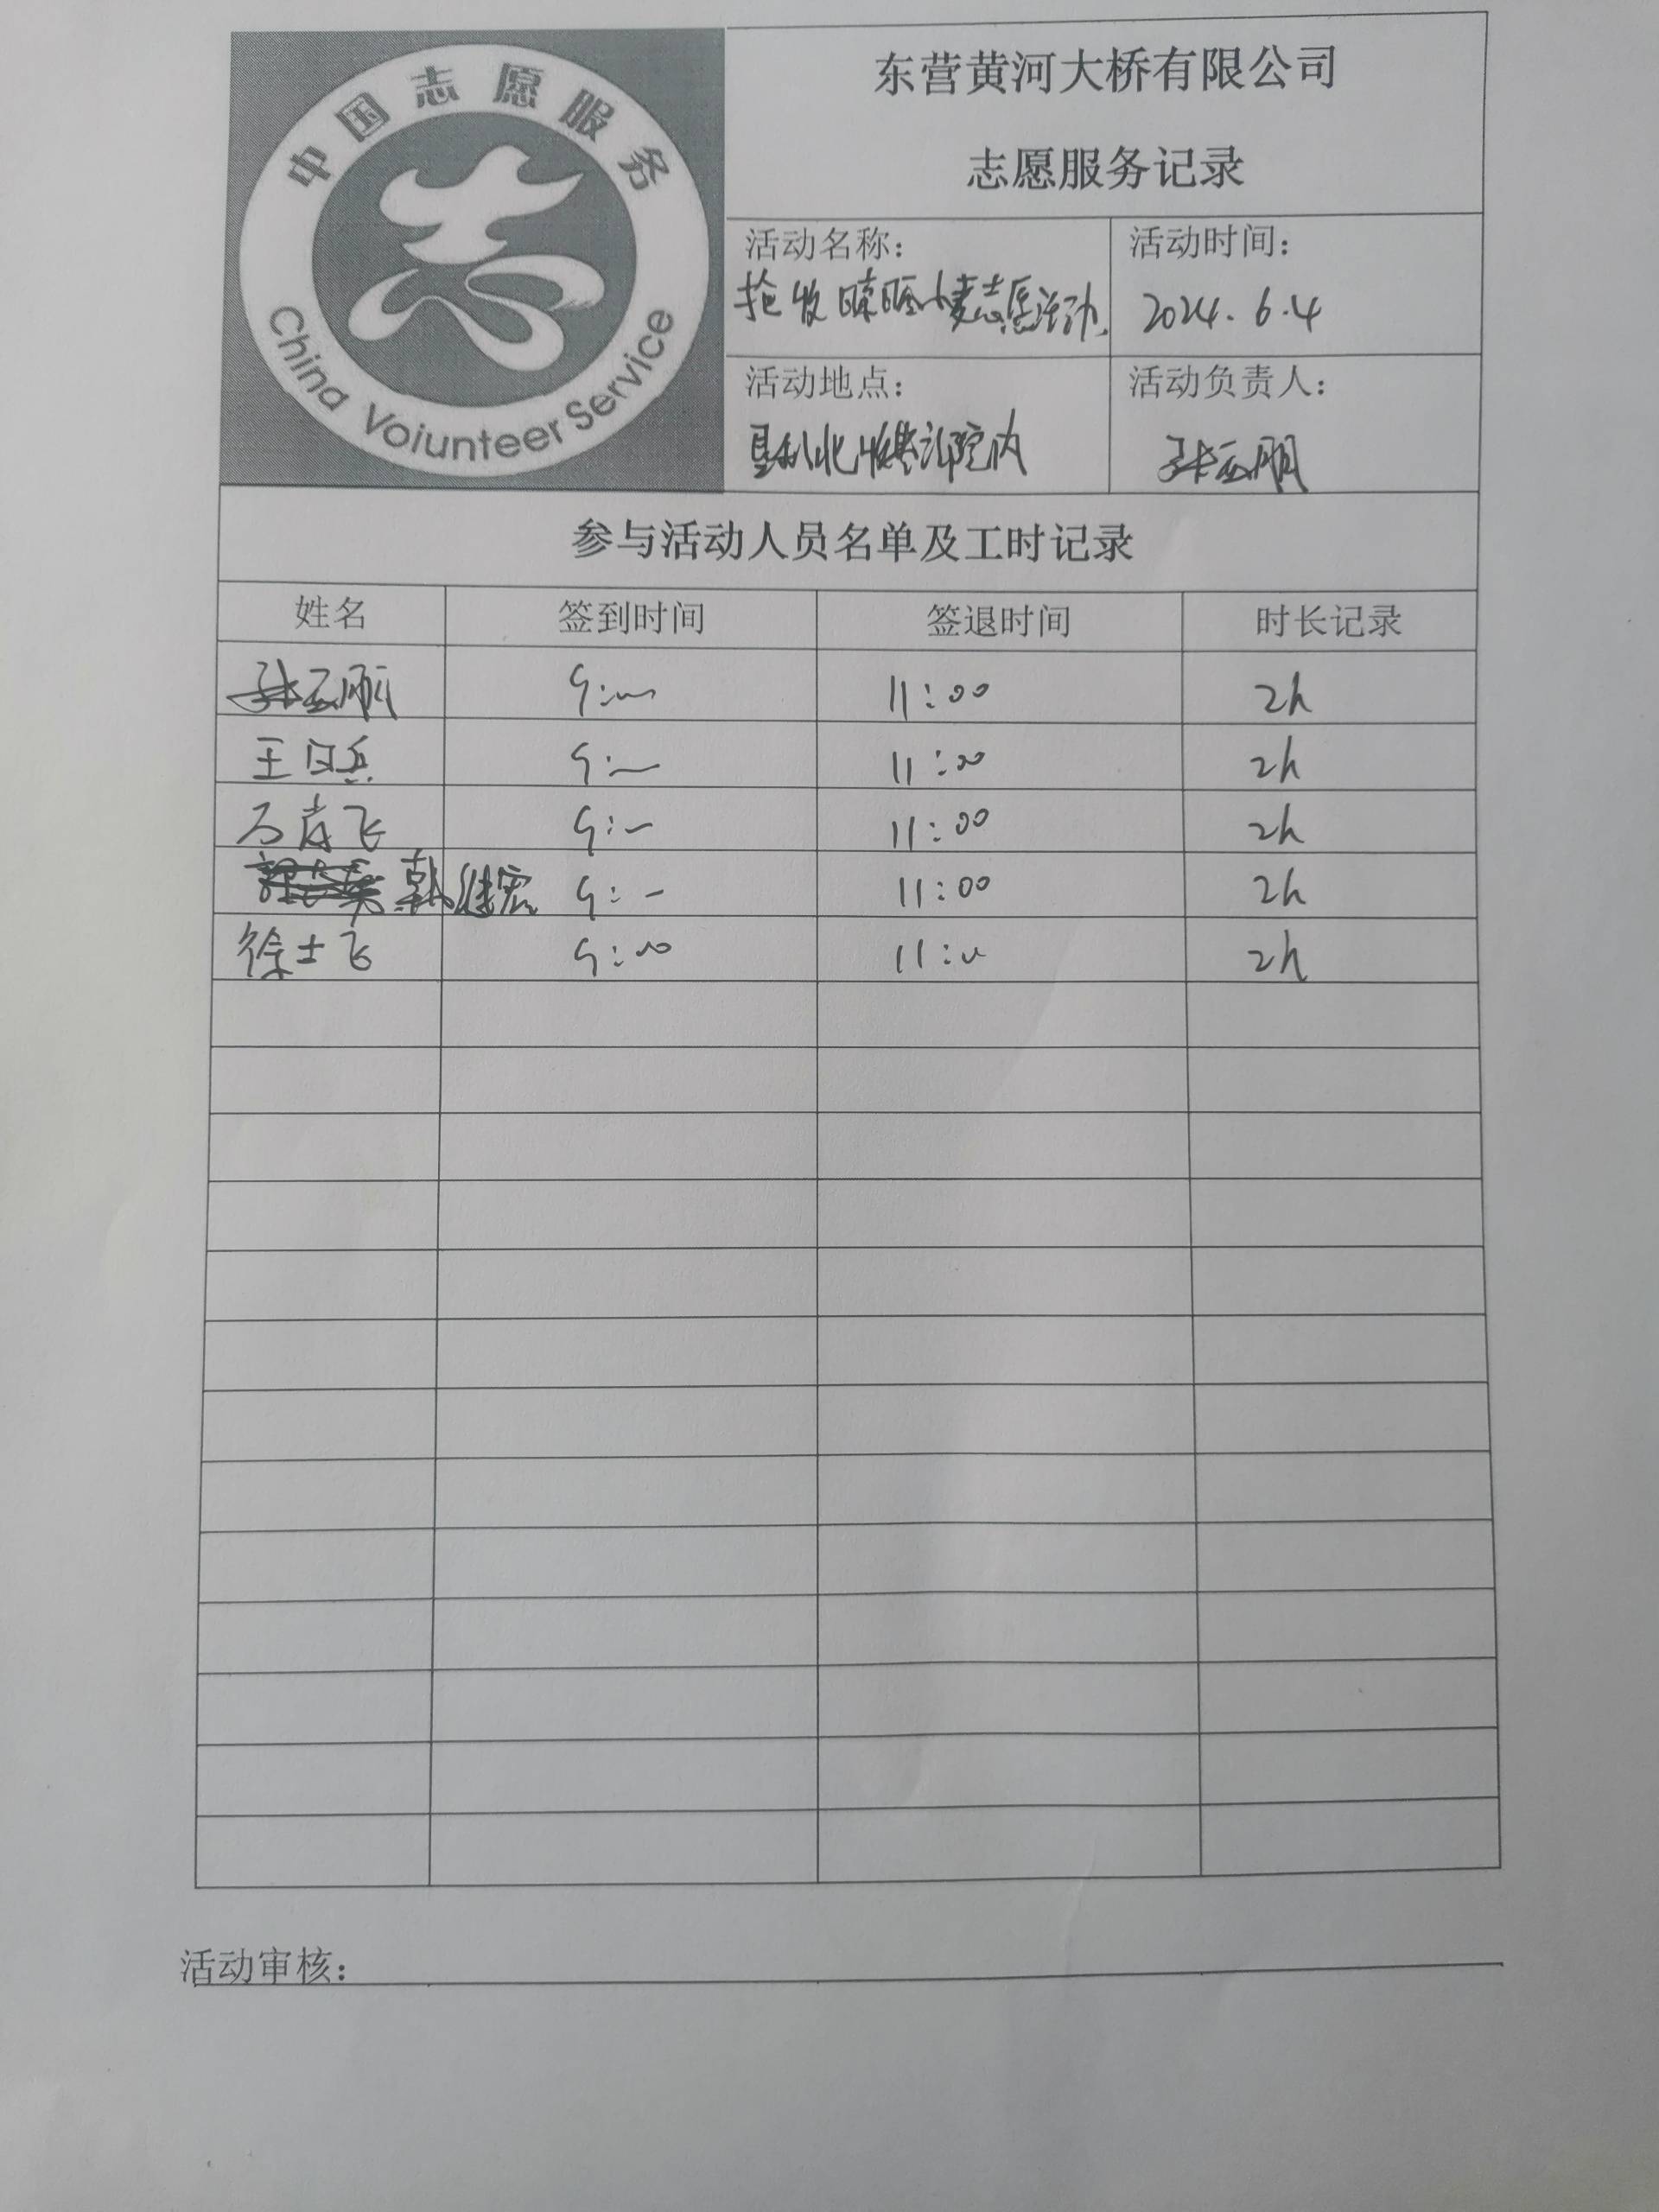 中国志愿服务
China Voiunteer Service
东营黄河大桥有限公司
志愿服务记录
活动名称：
抢收晾晒小麦志愿活动
活动时间：
2024.6.4
活动地点：
垦利北收费站院内
活动负责人：
张云鹏
参与活动人员名单及工时记录
姓名 签到时间 签退时间 时长记录
9:00 11:00 2h
王 兵 9:00 11:00 2h
飞 9:00 11:00 2h
韩继宏 9:00 11:00 2h
徐士飞 9:00 11:00 2h
活动审核：